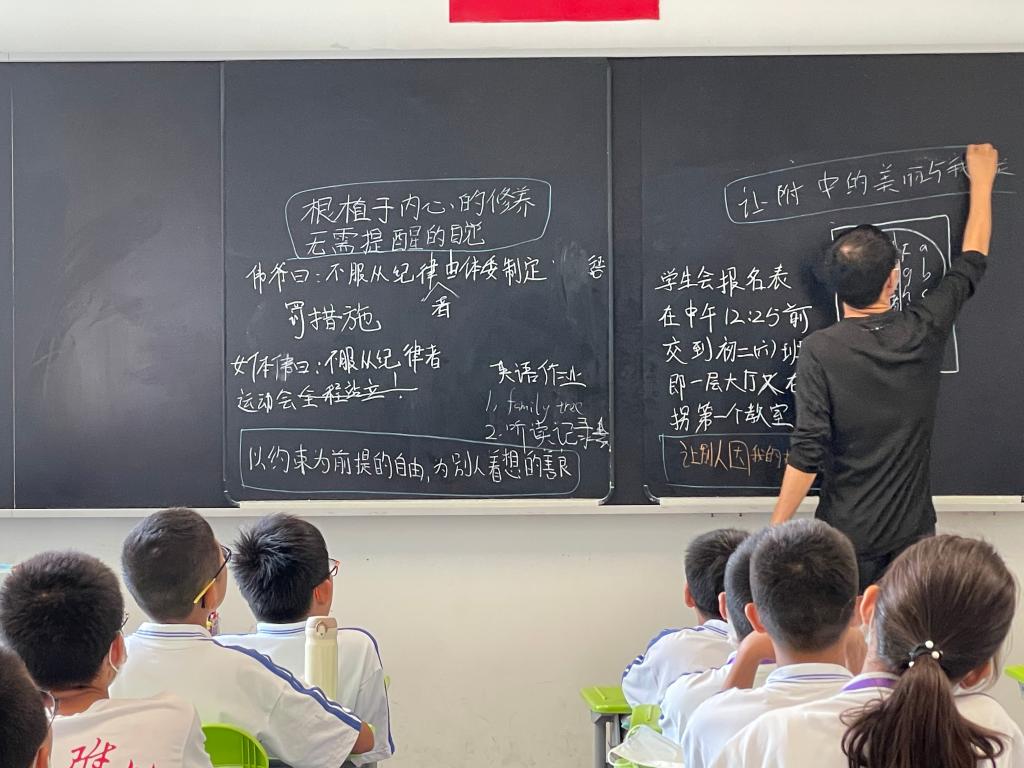 根植于内心的修养
无需提醒的自觉
伟爷曰：不服从纪律由体委制定
者
罚措施
不服从纪律者
运动会全程站立！
英语作业
1. family tree
2. 听读记录
以约束为前提的自由，为别人着想的善良
让附中的美丽与我
学生会报名表
在中午12:25前
交到初二(六)班
即一层大厅
拐第一个教室
让别人因我的
a
b